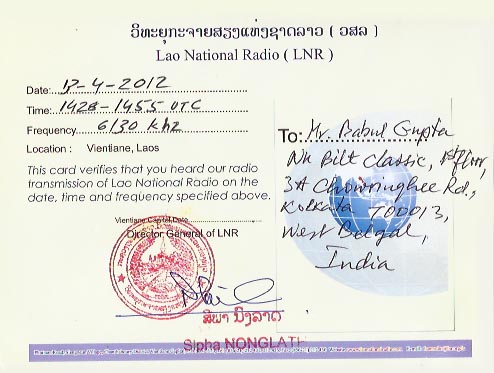 ວິທະຍຸກະຈາຍສຽງແຫ່ງຊາດລາວ ( ວສລ )
Lao National Radio ( LNR )
Date: 17-4-2012
Time: 1428-1455 UTC
Frequency 6130 khz
Location : Vientiane, Laos
This card verifies that you heard our radio
transmission of Lao National Radio on the
date, time and frequency specified above.
Vientiane Capital, Date
Director General of LNR
ສີພາ ນົງລາດ
Sipha NONGLATH
To: Mr. Babul Gupta
Bilt Classic, 1st floor,
3A Chowringhee Rd.,
Kolkata 700013,
West Bengal,
India